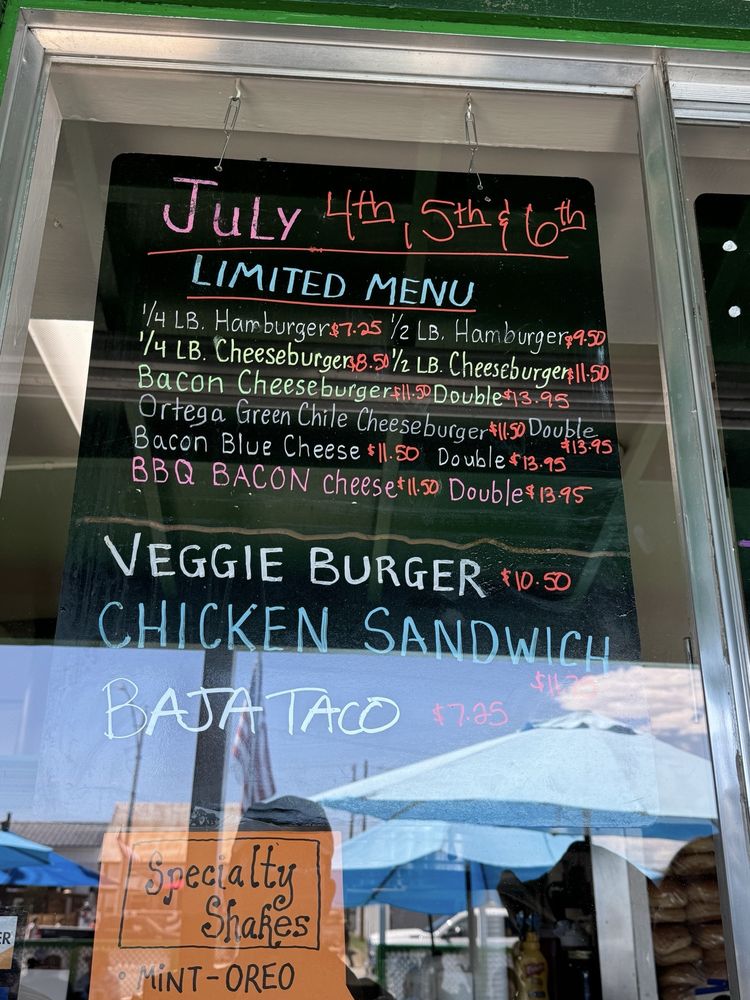 July 4th, 5th & 6th
LIMITED MENU
1/4 LB. Hamburger $7.25 1/2 LB. Hamburger $9.50
1/4 LB. Cheeseburger $8.50 1/2 LB. Cheeseburger $11.50
Bacon Cheeseburger $11.50 Double $13.95
Ortega Green Chile Cheeseburger $11.50 Double $13.95
Bacon Blue Cheese $11.50 Double $13.95
BBQ BACON cheese $11.50 Double $13.95
VEGGIE BURGER $10.50
CHICKEN SANDWICH
BAJA TACO $7.25
Specialty
Shakes
• MINT-OREO
ER